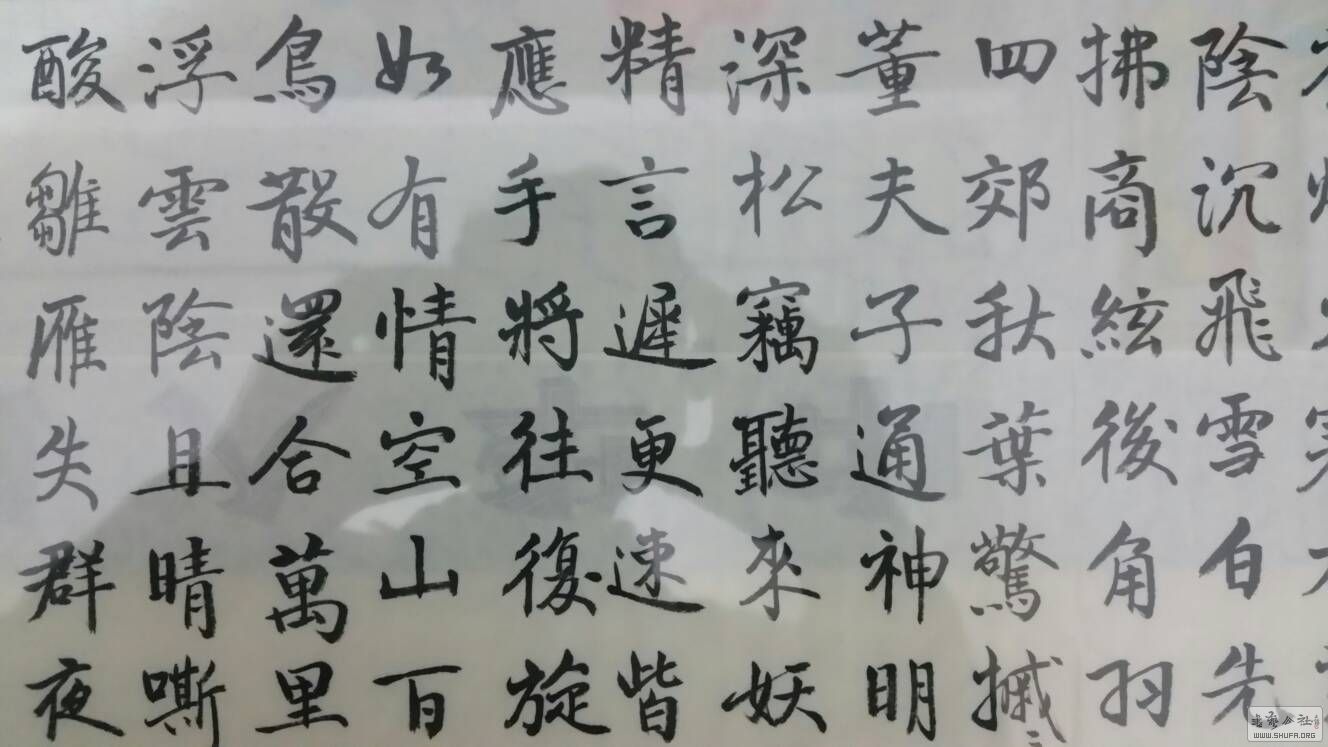 陰沉飛雪白先
拂商絃後角羽
四郊秋葉驚摵
董夫子通神明
深松竊聽來妖
精言遲更速皆
應手將往復旋
如有情空山百
鳥散還合萬里
浮雲陰且晴嘶
酸雛雁失群夜
WWW.SHUFA.ORG